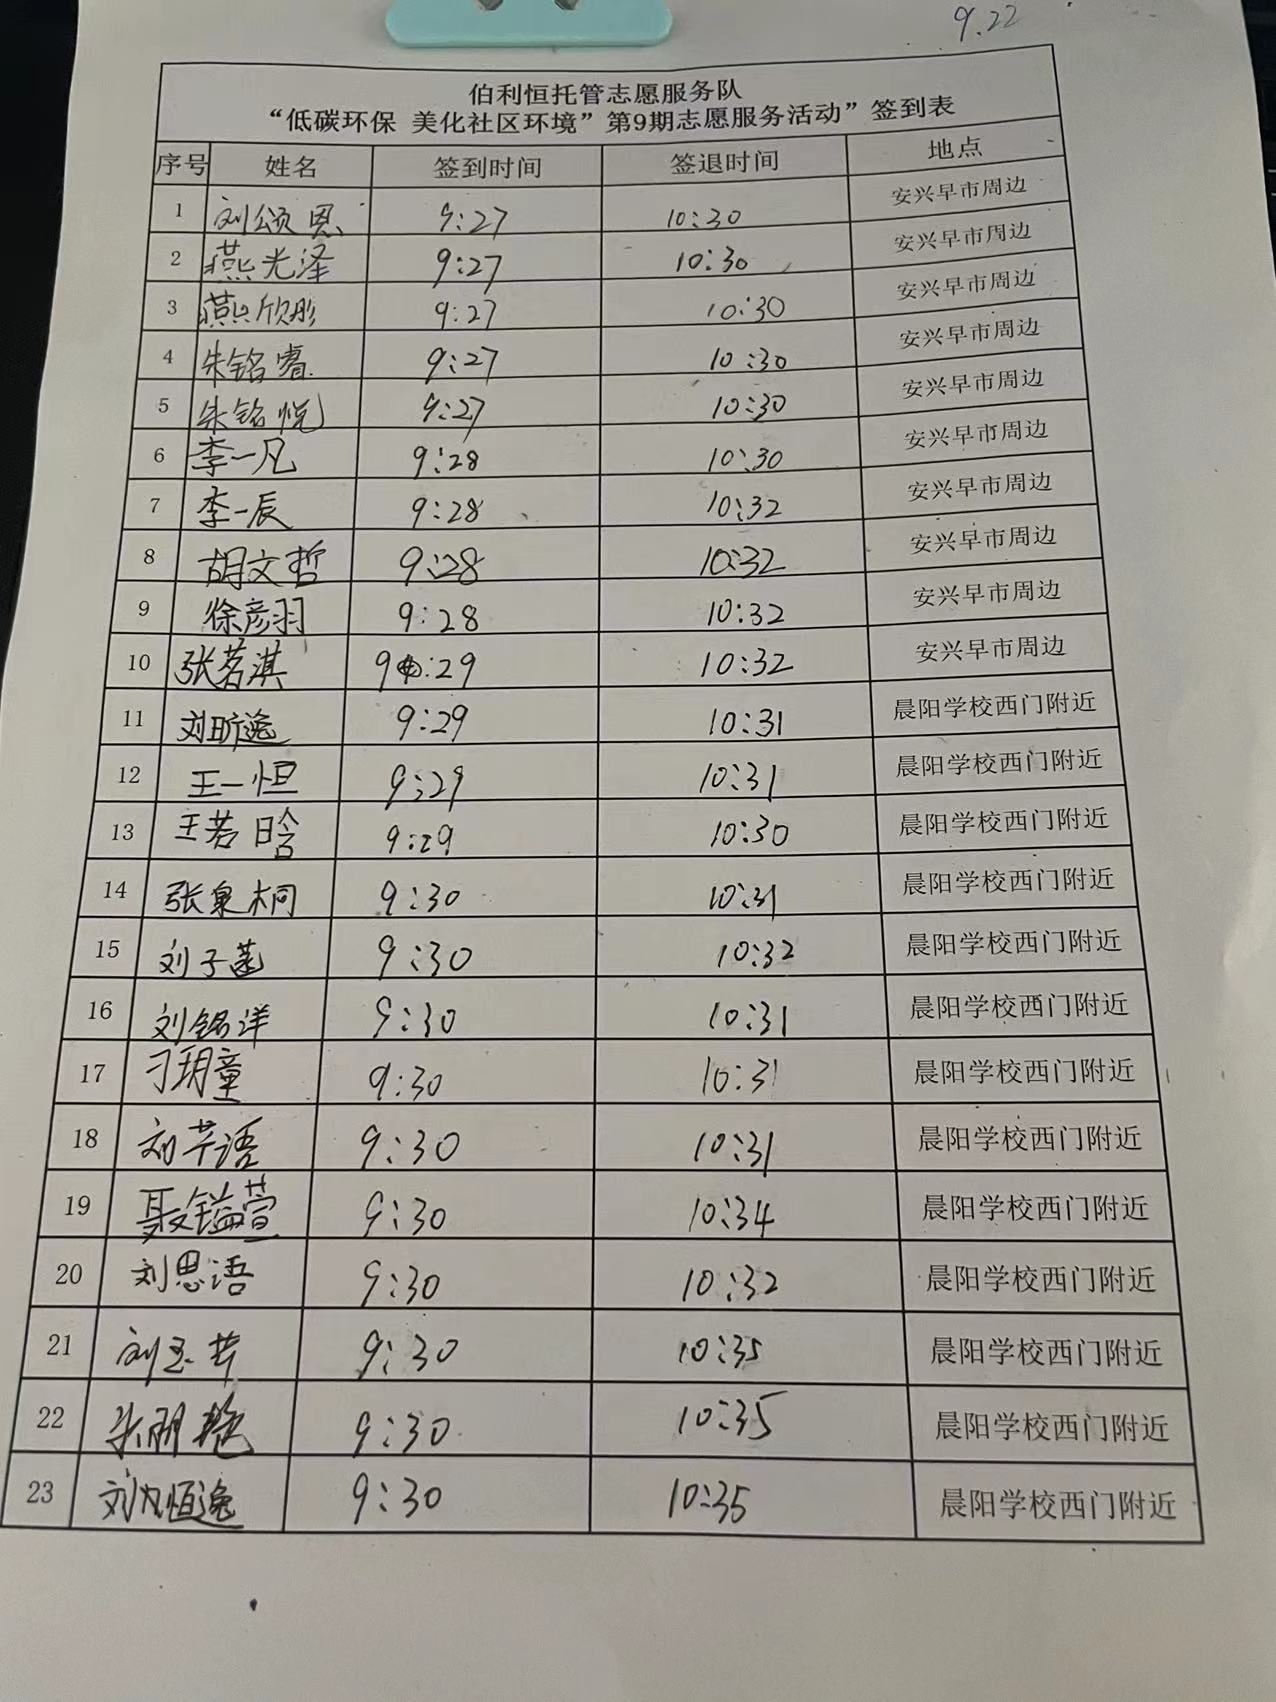 9.22
伯利恒托管志愿服务队
“低碳环保 美化社区环境”第9期志愿服务活动”签到表
序号 姓名 签到时间 签退时间 地点
1 刘颂恩 9:27 10:30 安兴早市周边
2 燕光泽 9:27 10:30 安兴早市周边
3 燕欣彤 9:27 10:30 安兴早市周边
4 朱铭睿 9:27 10:30 安兴早市周边
5 朱铭悦 9:27 10:30 安兴早市周边
6 李一凡 9:28 10:30 安兴早市周边
7 李一辰 9:28 10:32 安兴早市周边
8 胡文哲 9:28 10:32 安兴早市周边
9 徐彦羽 9:28 10:32 安兴早市周边
10 张茗淇 9:29 10:32 安兴早市周边
11 刘昕逸 9:29 10:31 晨阳学校西门附近
12 王一恒 9:29 10:31 晨阳学校西门附近
13 王若晗 9:29 10:30 晨阳学校西门附近
14 张皋桐 9:30 10:31 晨阳学校西门附近
15 刘子菡 9:30 10:32 晨阳学校西门附近
16 刘铭洋 9:30 10:31 晨阳学校西门附近
17 刁玥童 9:30 10:31 晨阳学校西门附近
18 刘芊语 9:30 10:31 晨阳学校西门附近
19 聂镒萱 9:30 10:34 晨阳学校西门附近
20 刘思语 9:30 10:32 晨阳学校西门附近
21 刘玉芹 9:30 10:35 晨阳学校西门附近
22 9:30 10:35 晨阳学校西门附近
23 9:30 10:35 晨阳学校西门附近